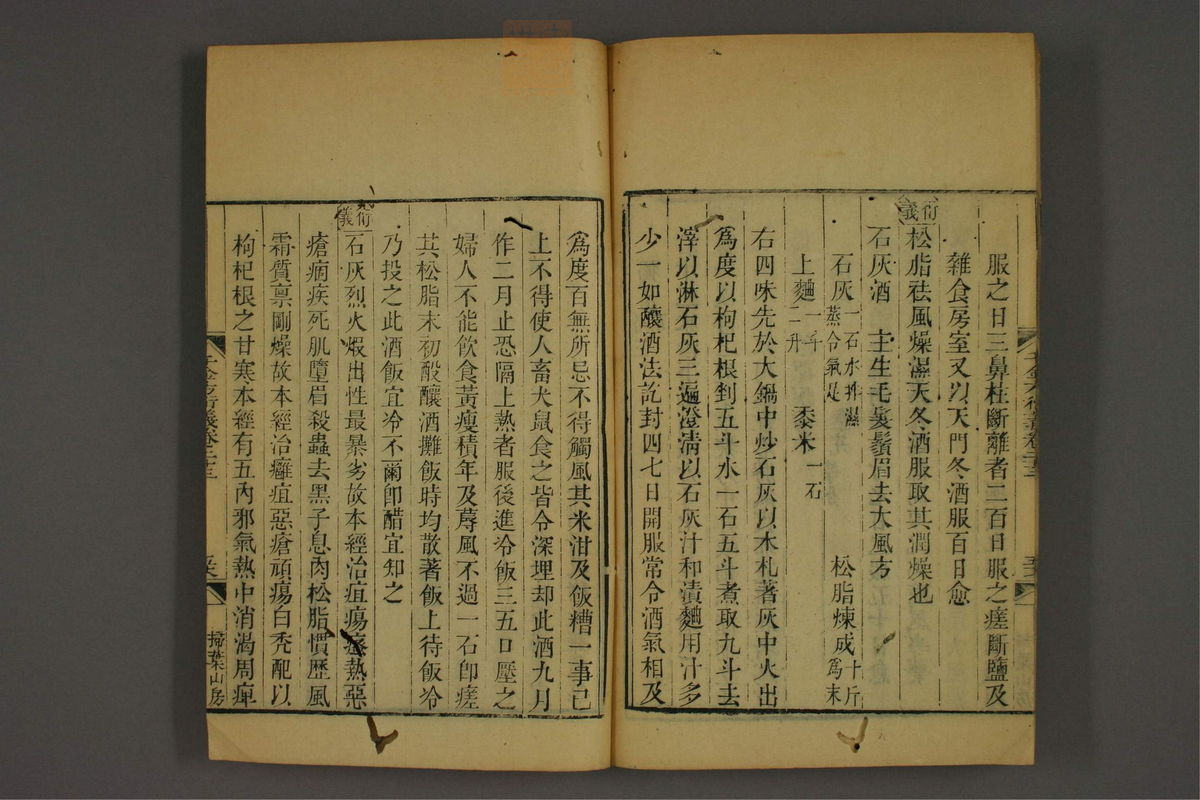 服之日三鼻柱斷離者二百日服之瘥斷鹽及
雜食房室又以天門冬酒服百日愈
衍義
松脂祛風燥濕天冬酒服取其潤燥也
石灰酒 主生毛髮鬚眉去大風方
石灰一石水拌濕蒸令氣足 松脂煉成十斤爲末
上麯一斗二升 黍米一石
右四味先於大鍋中炒石灰以木札著灰中火出
爲度以枸杞根剉五斗水一石五斗煮取九斗去
滓以淋石灰三遍澄清以石灰汁和漬麯用汁多
少一如釀酒法訖封四七日開服常令酒氣相及
爲度百無所忌不得觸風其米泔及飯糟一事已
上不得使人畜犬鼠食之皆令深埋却此酒九月
作二月止恐隔上熱者服後進冷飯三五口壓之
婦人不能飲食黃瘦積年及蓐風不過一石卽瘥
其松脂末初酘釀酒攤飯時均散著飯上待飯冷
乃投之此酒飯宜冷不爾卽醋宜知之
衍義
石灰烈火煆出性最暴劣故本經治疽瘍瘙熱惡
瘡癘疾死肌墮眉殺蟲去黑子息肉松脂慣歷風
霜質稟剛燥故本經治癰疽惡瘡頑瘍白禿配以
枸杞根之甘寒本經有五內邪氣熱中消渴周痺
千金方衍義卷二十三
掃葉山房